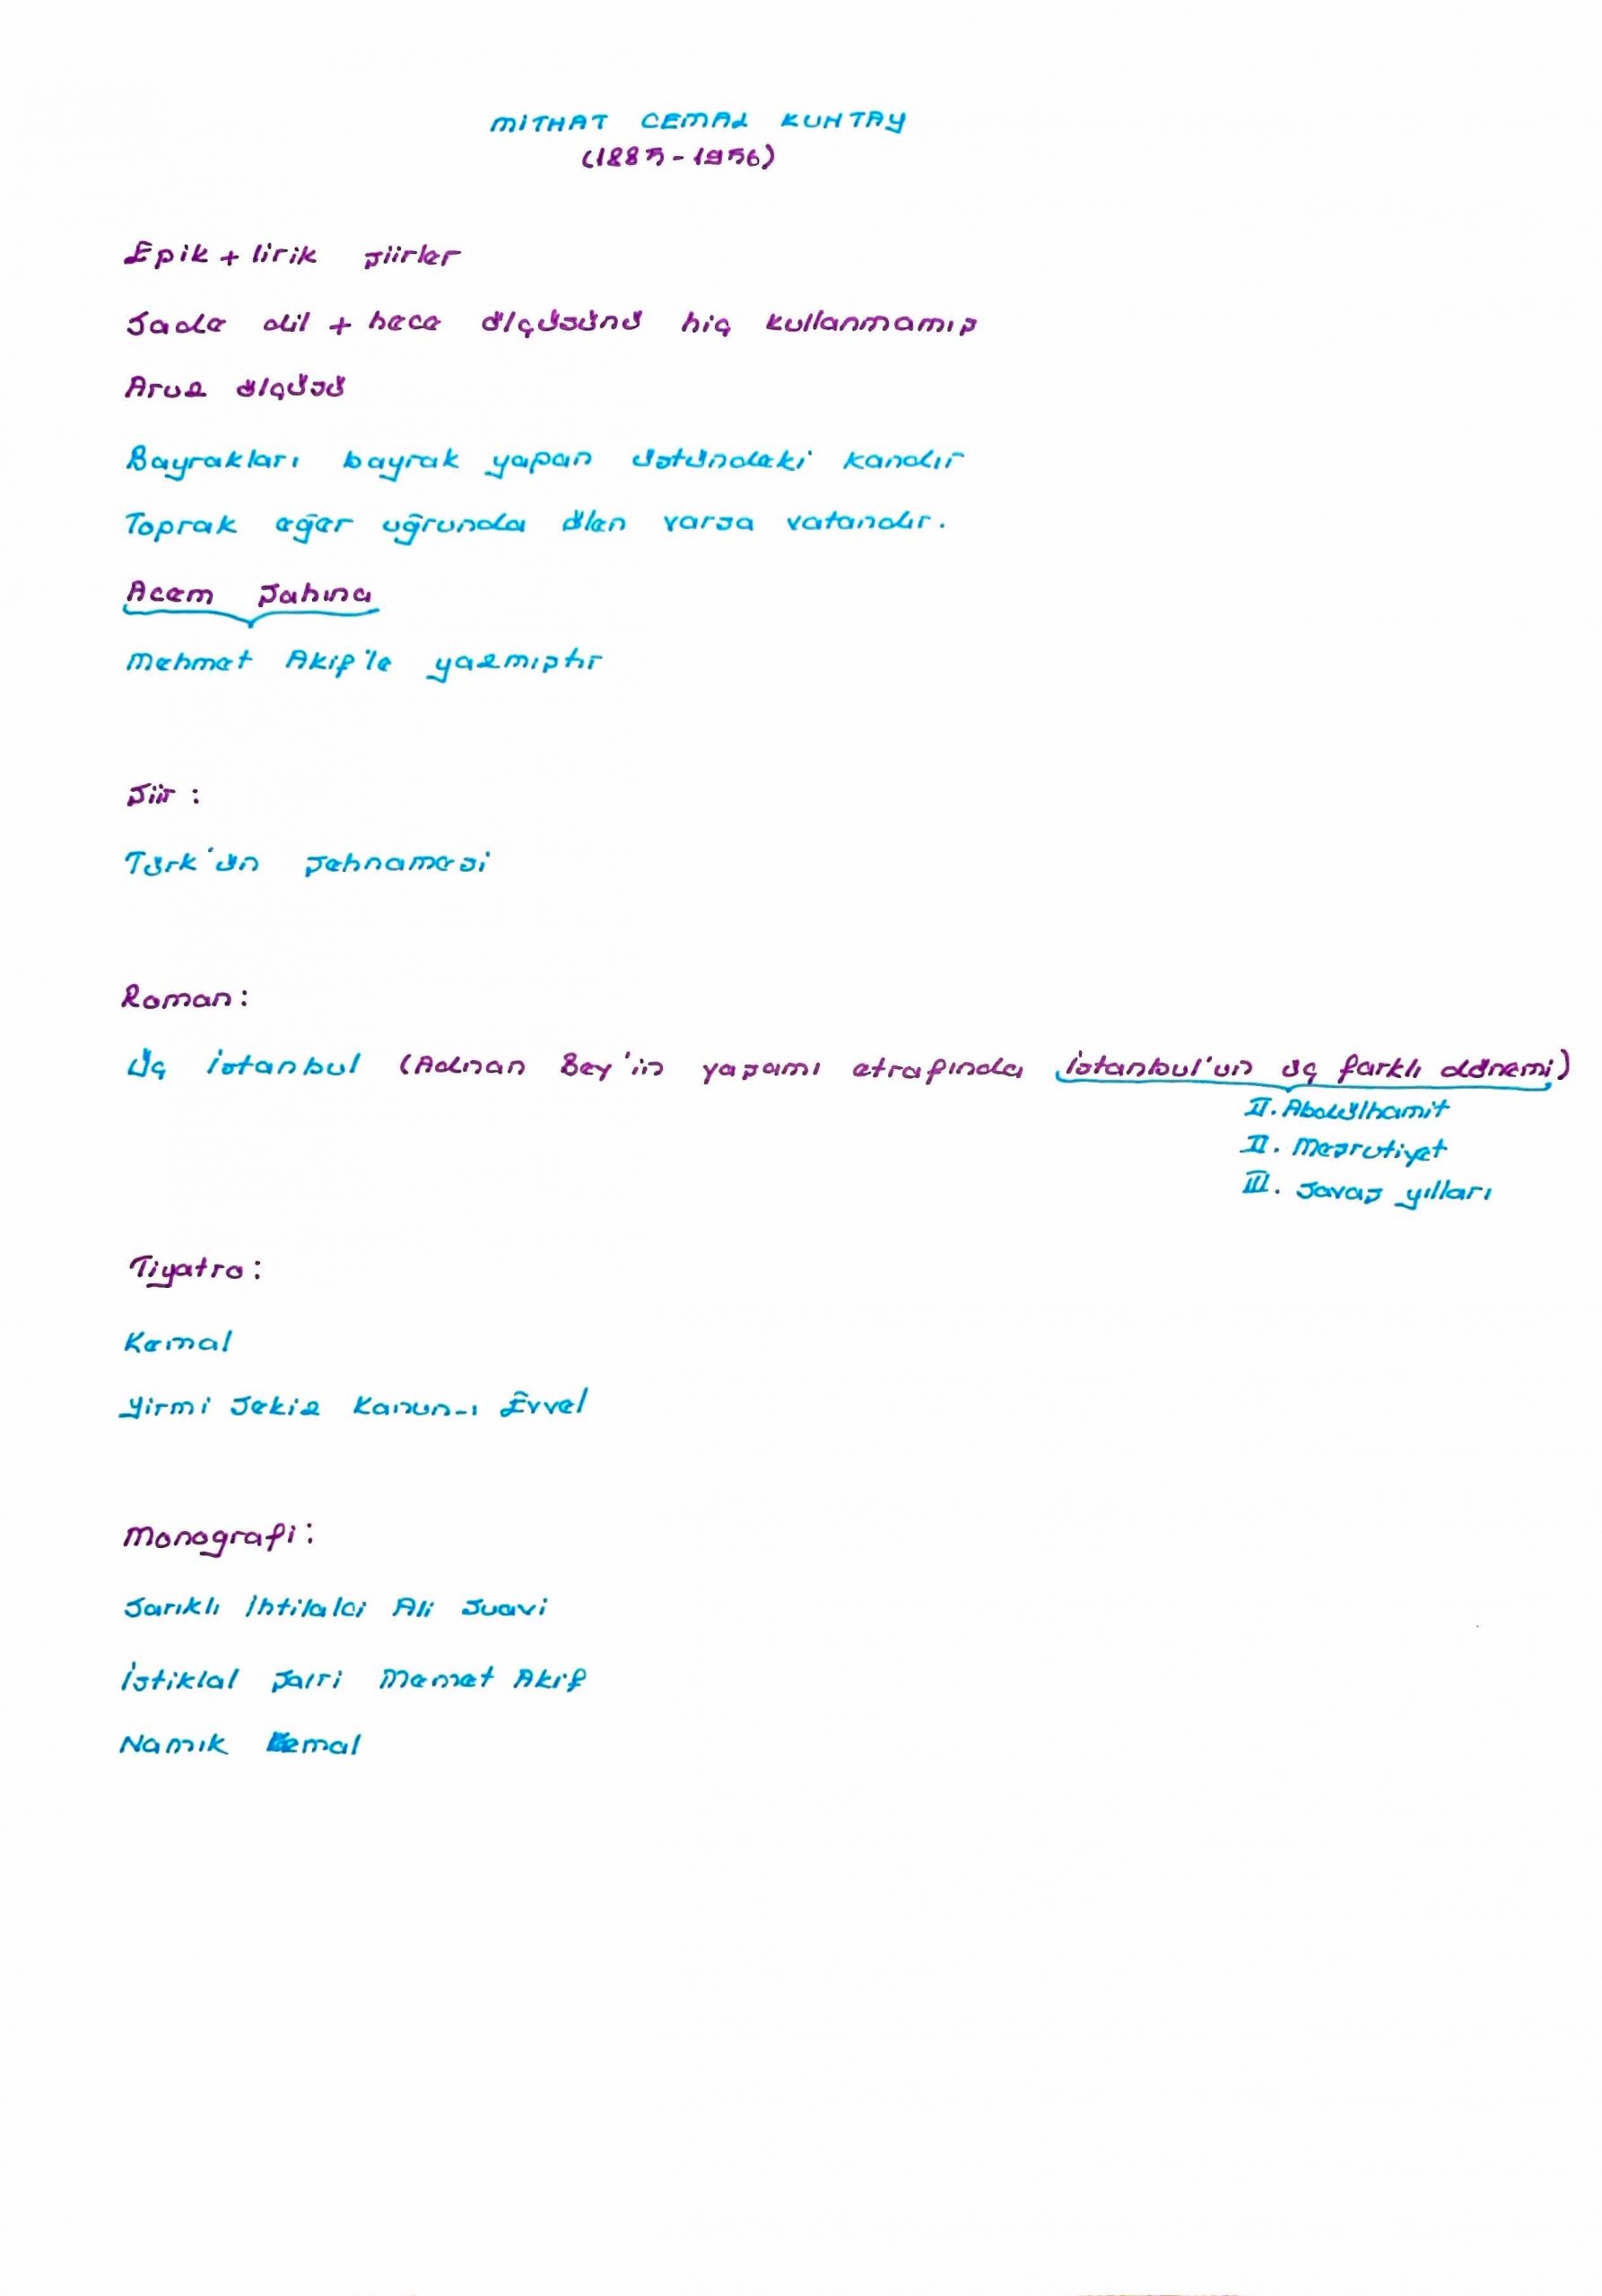 MİTHAT CEMAL KUNTAY
(1885-1956)
Epik + lirik şiirler
Sade dil + hece ölçüsünü hiç kullanmamış
Aruz ölçüsü
Bayrakları bayrak yapan üstündeki kandır
Toprak eğer uğrunda ölen varsa vatandır.
Acem Şahına
Mehmet Akif'le yazmıştır
Şiir :
Türk'ün Şehnamesi
Roman :
Üç İstanbul (Adnan Bey'in yaşamı etrafında İstanbul'un üç farklı dönemi)
II. Abdülhamit
II. Meşrutiyet
III. Savaş yılları
Tiyatro :
Kemal
Yirmi Sekiz Kanun-ı Evvel
Monografi :
Sarıklı İhtilalci Ali Suavi
İstiklal Şairi Memet Akif
Namık Kemal